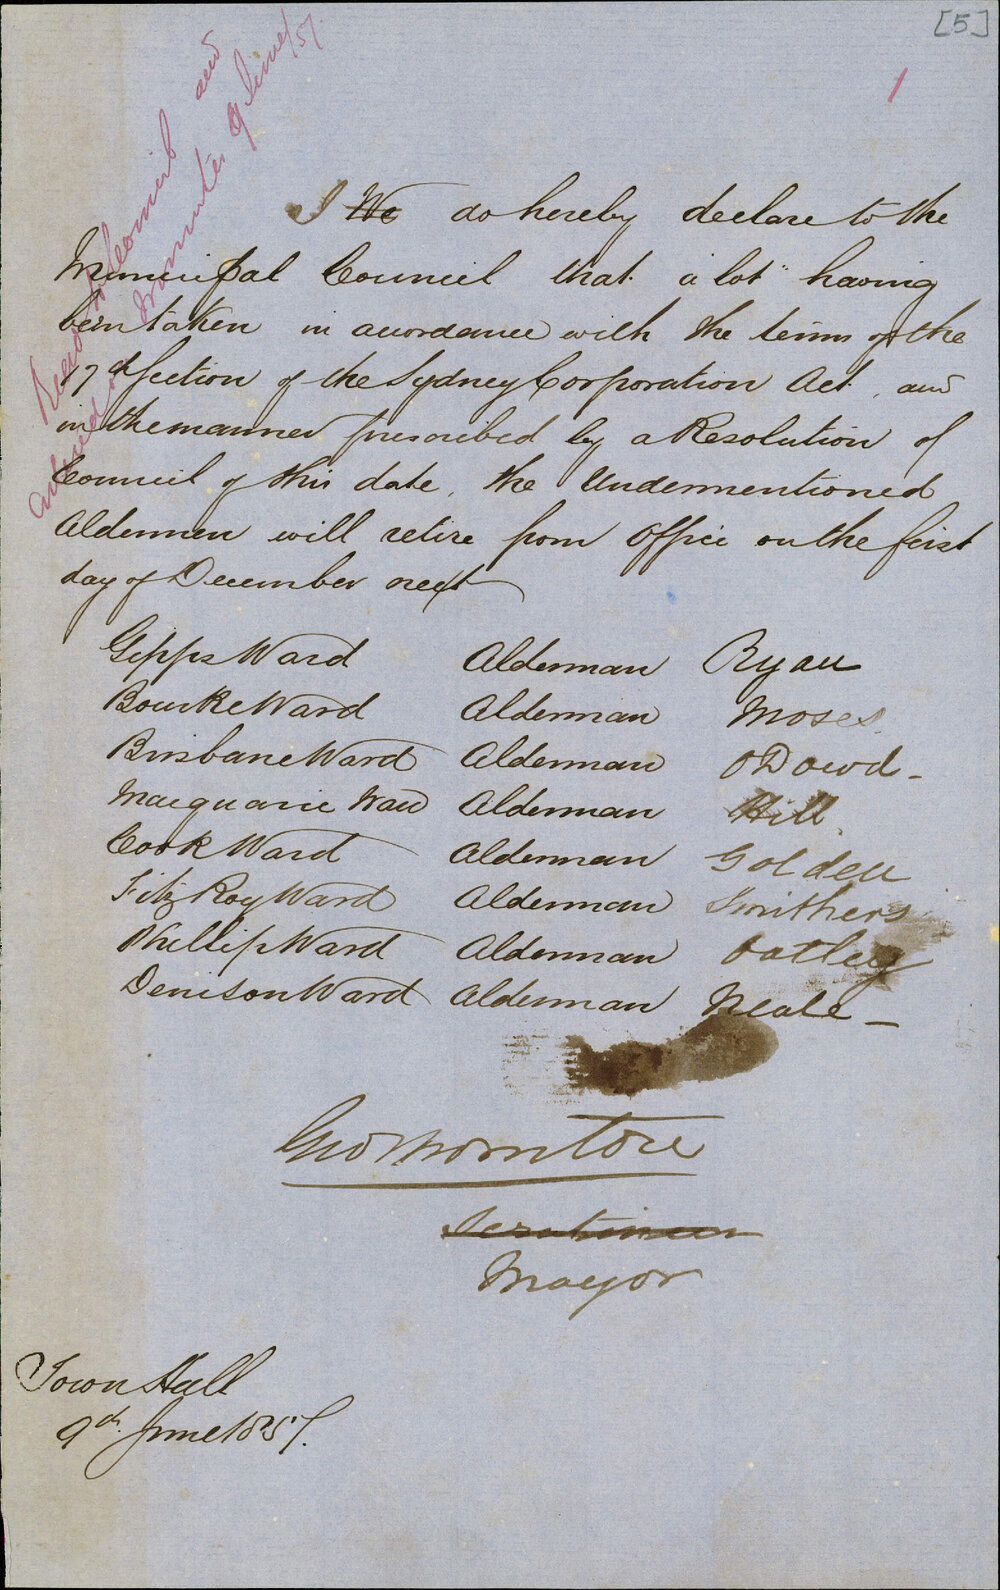 [5]
1
Read in Council and
entered on Minutes 9 June/57.
I We do hereby declare to the
Municipal Council that "a lot" having
been taken in accordance with the terms of the
17th Section of the Sydney Corporation Act, and
in the manner prescribed by a Resolution of
Council of this date, the Undermentioned
Aldermen will retire from Office on the first
day of December next
Gipps Ward Alderman Ryan
Bourke Ward Alderman Moses
Brisbane Ward Alderman O'Dowd -
Macquarie Ward Alderman Hill
Cook Ward Alderman Golden
Fitz Roy Ward Alderman Smithers
Phillip Ward Alderman Oatley
Denison Ward Alderman Neale -
Geo Thorntore
Scrutineer
Mayor
Town Hall
9th. June 1857.